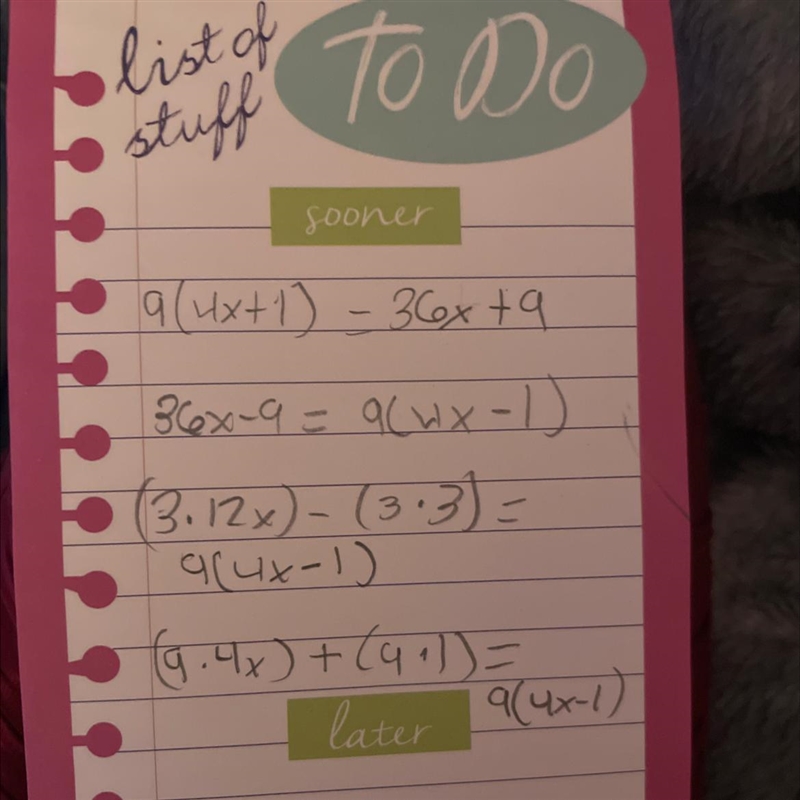 list of
stuff
To Do
sooner
9(4x+1) = 36x+9
36x-9 = 9(4x-1)
(3·12x)-(3·3)=
9(4x-1)
(9·4x)+(9·1)=
9(4x-1)
later